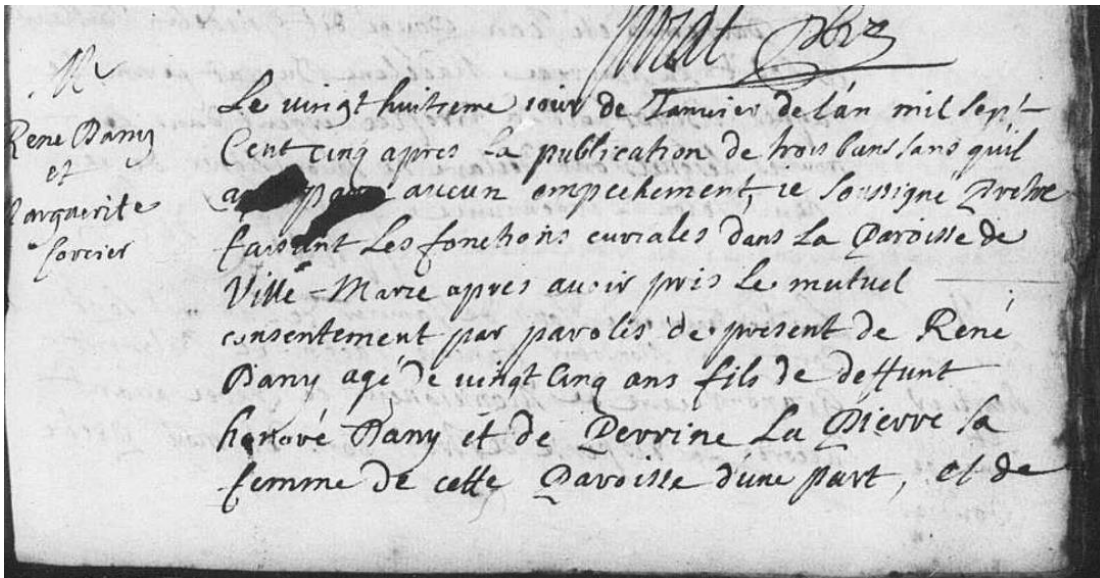 M
René Dany
et
Marguerite
forcier
Le vingt huitieme iour de Januier de l'an mil sept
Cent cinq apres la publication de trois bans sans quil
aucun empechement, ie soussigné Prestre
faisant les fonctions curiales dans la Paroisse de
Ville-Marie apres auoir pris le mutuel
consentement par paroles de present de René
Dany agé de vingt cinq ans fils de deffunt
honoré Dany et de Perrine La Pierre sa
femme de cette Paroisse d'une part, et de